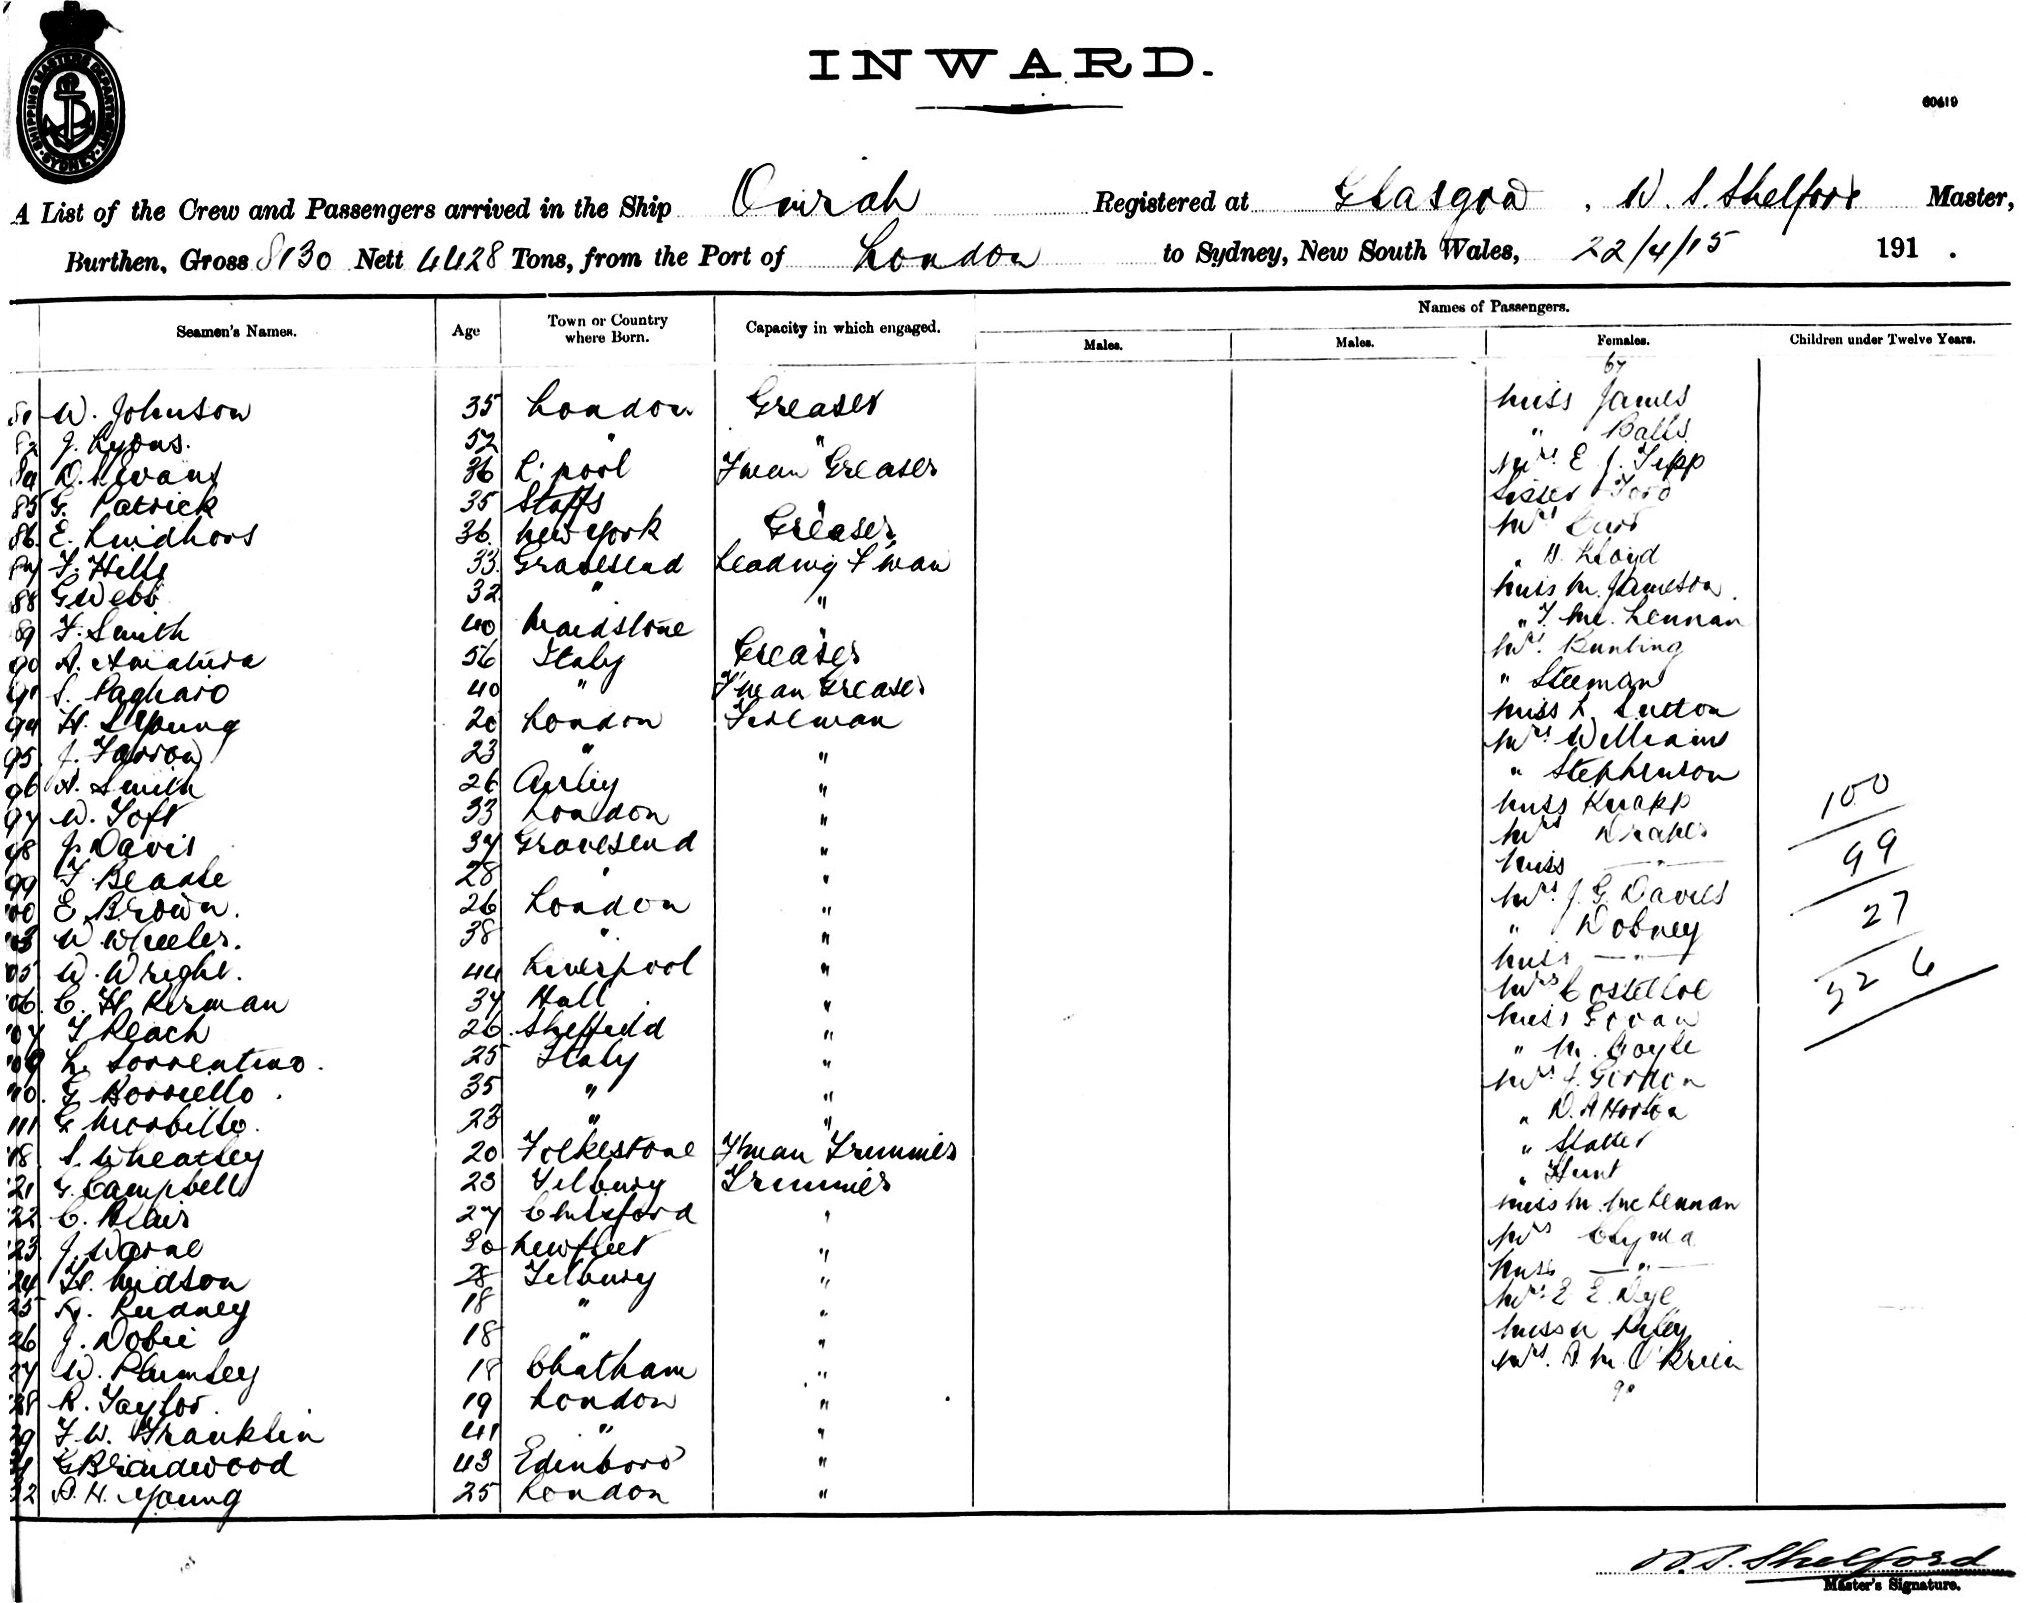 SHIPPING MASTERS DEPARTMENT
SYDNEY
INWARD.
60419
A List of the Crew and Passengers arrived in the Ship Omrah Registered at Glasgow, W. S. Shelford Master,
Burthen, Gross 8130 Nett 4428 Tons, from the Port of London to Sydney, New South Wales, 22/4/15 191 .
Names of Passengers.
Seamen's Names. Age Town or Country where Born. Capacity in which engaged. Males. Males. Females. Children under Twelve Years.
81 W. Johnson 35 London Greaser Miss James
82 J. Lyons. 52 " " " Balls
D. Evans 36 L'pool F'man Greaser Mrs. E. J. Tipp
85 G. Patrick 35 Staffs " Sister Ford
86 E. Lindhors 36 New York Greaser Mrs
87 F. Hills 33 Gravesend Leading F'man " H. Lloyd
88 G Webb 32 " " Miss M. Jameson
89 F. Smith 40 Maidstone " " T. Mc. Lennan
90 A. Amatura 56 Italy Greaser Mrs. Bunting
91 S. Pagliaro 40 " F'man Greaser " Steeman
94 H. S Young 20 London Fireman Miss L. Sutton
95 J. Farrow 23 " " Mrs Williams
96 A. Smith 26 " " Stephenson
97 W. Toft 33 London " Miss Knapp
98 J. Davis 37 Gravesend " Mrs Draper
99 F. Beadle 28 " " Miss — " —
100 E Brown. 26 London " Mrs J. G. Davies
03 W Wheeler. 38 " " " Dobney
05 W. Wright. 44 Liverpool " Miss — " —
06 C. H Kerman 37 Hull " Mrs Costelloe
07 T Reach 26 Sheffield " Miss
09 L. Sorrentino. 25 Italy " " M. Coyle
10. G Borriello. 35 " " Mrs J. Gordon
111 G Morbillo. 23 " " " D. A Horton
18. S. Wheatley 20 Folkestone F'man Trimmer " Slatter
21 G. Campbell 23 Tilbury Trimmer " Hunt
22 C. Blair 27 Chelsford " Miss M. McLennan
23 J. Warne 30 " Mrs Clyma
24 H. Midson 28 Tilbury " Miss — " —
25 Rudney 18 " " Mrs. E. E. Dye
26 J. Dobie 18 " " Miss Riley
27 W. Plumley 18 Chatham " Mrs. A. M. O'Brien
28 R. Taylor. 19 London " 90
29 F. W. Franklin 41 " "
G Braidwood 43 Edinboro' "
32 A. H. Young 25 London "
100
99
27
326
W. S. Shelford
Master's Signature.